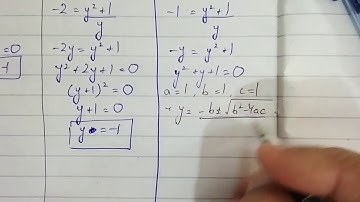 =0
-1
-2 = y²+1
y
-2y = y²+1
y²+2y+1=0
(y+1)²=0
y+1=0
y = -1
-1 = y²+1
y
-y = y²+1
y²+y+1=0
a=1 b=1 c=1
y = -b±√b²-4ac